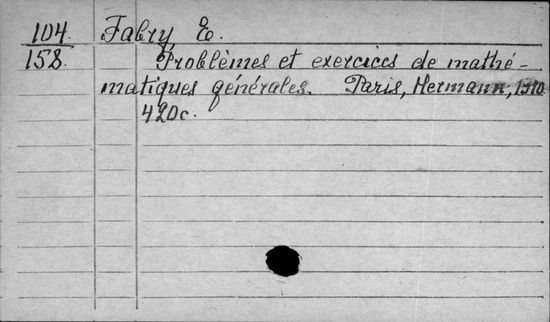 104. Fabry E.
158. Problèmes et exercices de mathé-
matiques générales. Paris, Hermann, 1910.
420c.